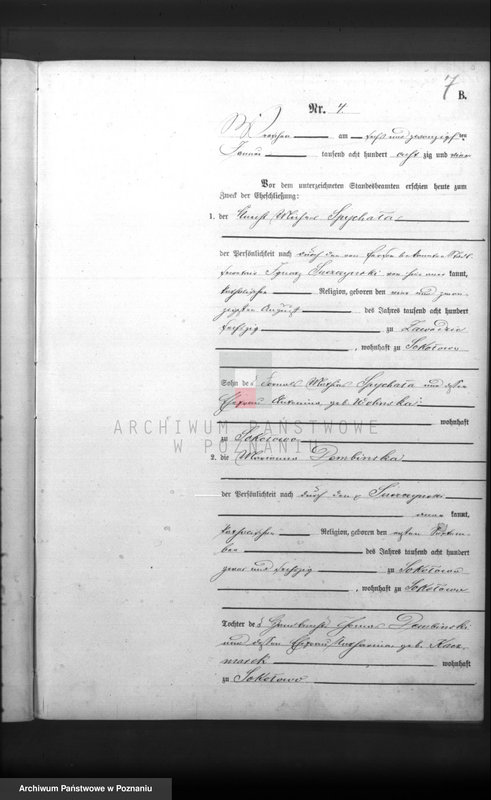 7
B.
Nr. 4.
Wreschen am sechs und zwanzigsten
Januar tausend acht hundert acht zig und
Vor dem unterzeichneten Standesbeamten erschien heute zum
Zweck der Eheschließung:
1. der Knecht Michael Spychała
der Persönlichkeit nach durch den von Person bekannten
Ignatz Suszczynski von hier kannt,
katholischer Religion, geboren den und zwan-
zigsten August des Jahres tausend acht hundert
sechszig zu Zawodzie
, wohnhaft zu Sokołowo
Sohn des Spychała und dessen
Ehefrau Antonina geb. Wolinska
wohnhaft
zu Sokołowo
2. die Marianna Dembinska
der Persönlichkeit nach durch den p Suszczynski
kannt,
katholischer Religion, geboren den ersten Septem-
ber des Jahres tausend acht hundert
zwei und sechszig zu Sokołowo
, wohnhaft zu Sokołowo
Tochter des Thomas Dembinski
und dessen Ehefrau Katharina geb. Kacz-
marek wohnhaft
zu Sokołowo
ARCHIWUM PAŃSTWOWE
W POZNANIU
Archiwum Państwowe w Poznaniu